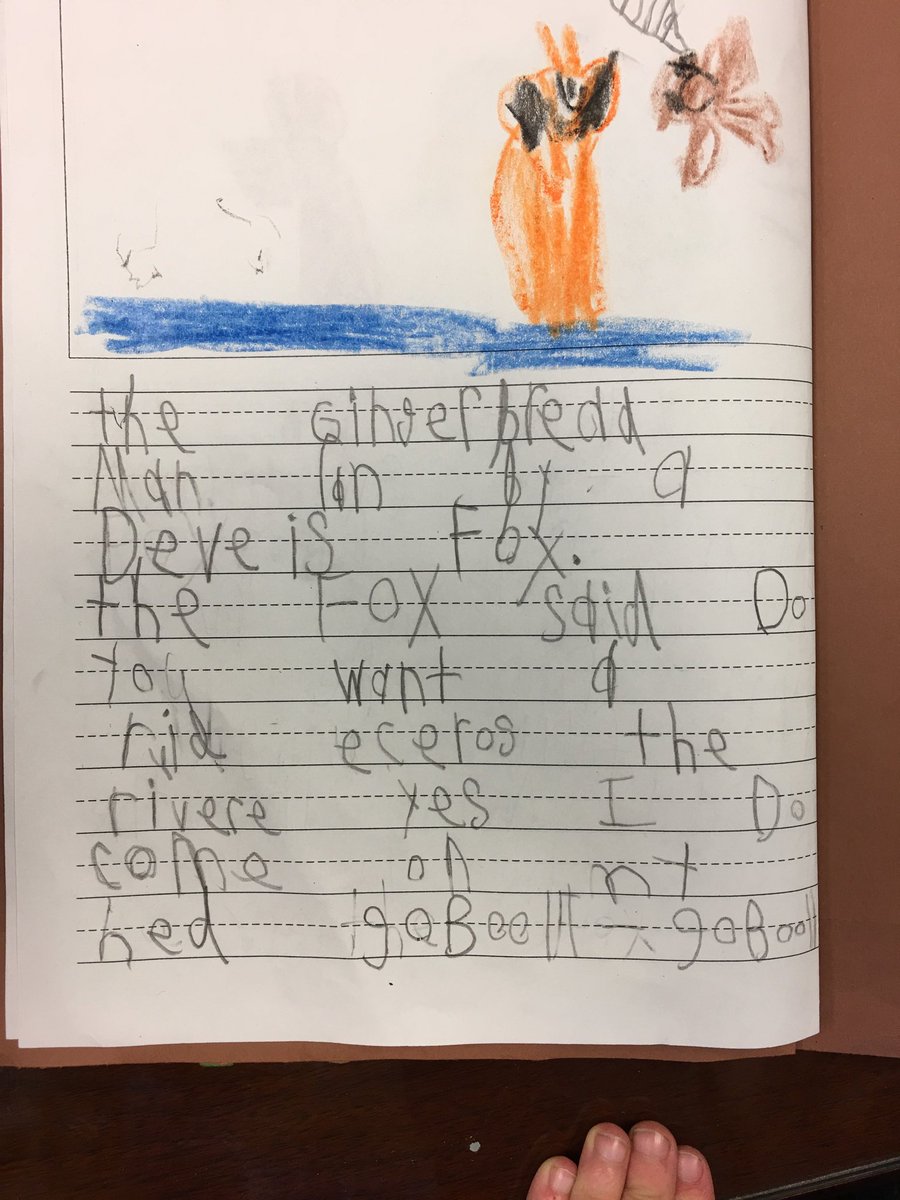 the Gingerbredd
Man ran by a
Deveis Fox.
the Fox said Do
you want a
rid eceros the
rivere yes I Do
come on mt
hed goBooll goBooll